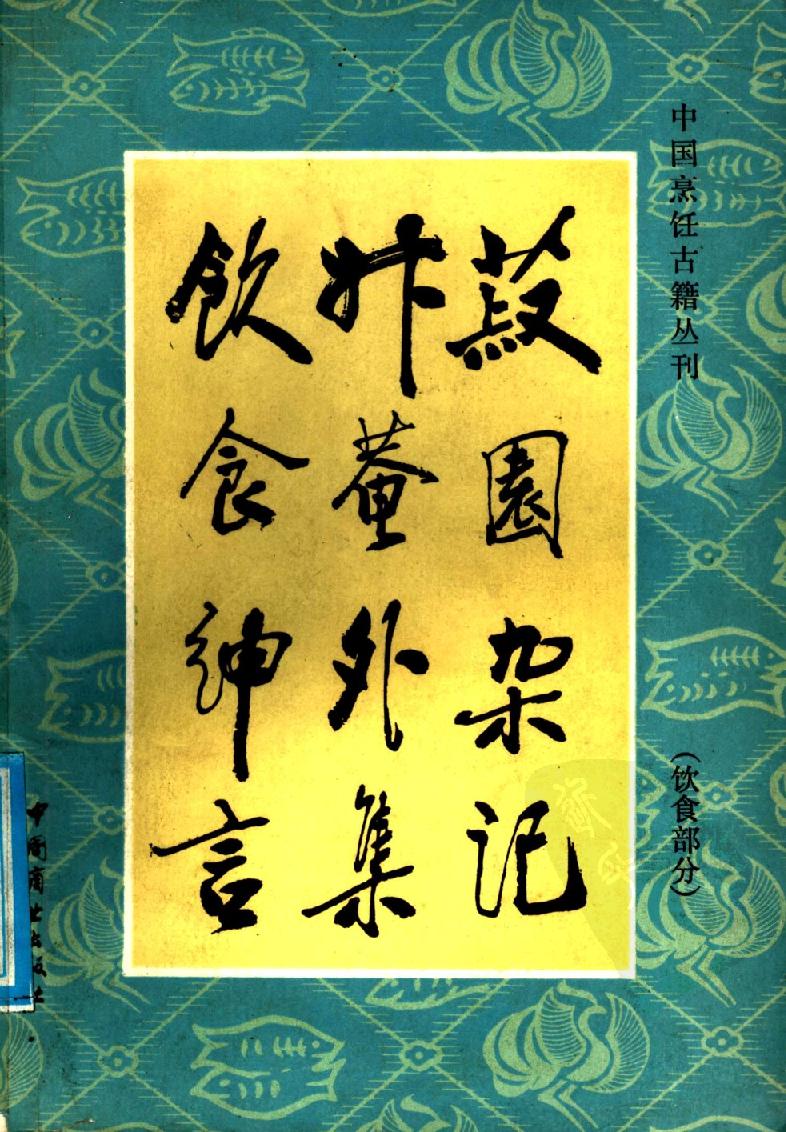 中国烹饪古籍丛刊
菽園杂记
升菴外集
飲食紳言
（饮食部分）
中國商业出版社